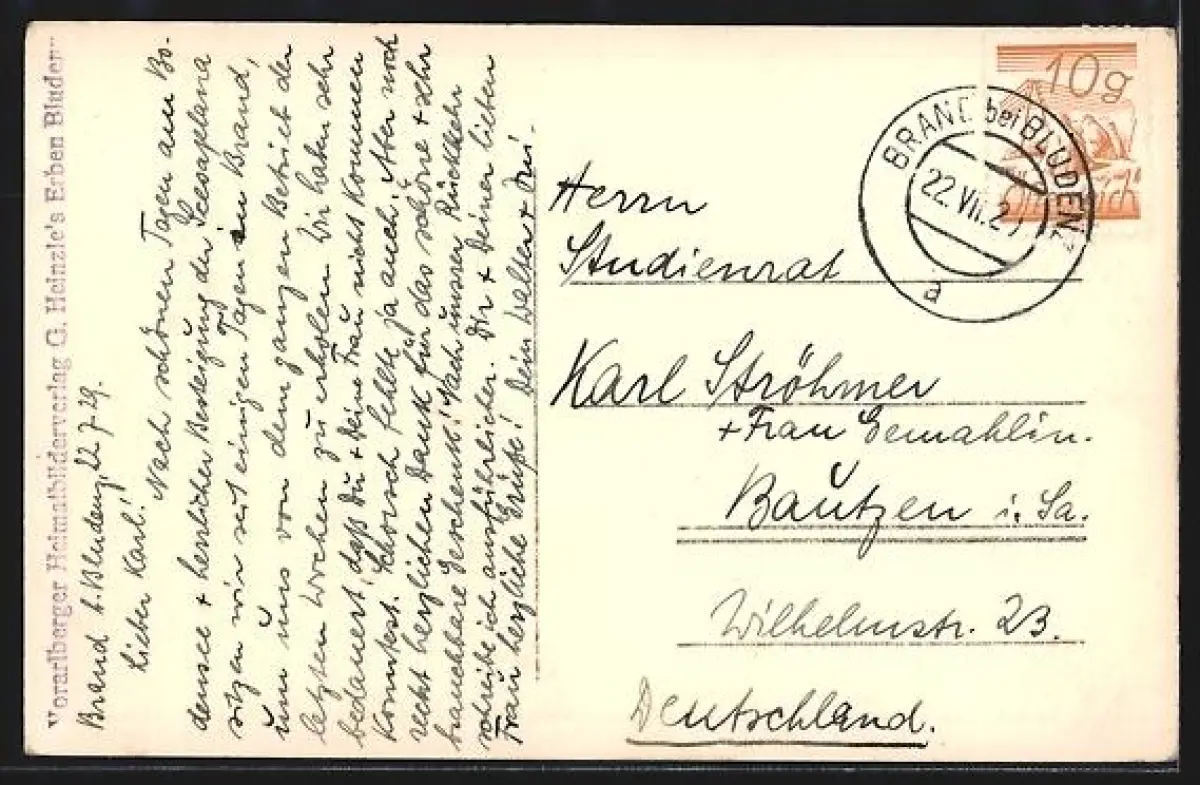 Vorarlberger Heimatbilderverlag G. Heinzle's Erben Bludenz
Brand b. Bludenz, 22.7.29.
Lieber Karl!
Nach schönen Tagen am Bo-
densee + herrlicher Besteigung der Scesaplana
sitzen wir seit einigen Tagen in Brand,
um uns von dem ganzen Betrieb der
letzten Wochen zu erholen. Wir haben sehr
bedauert, daß Du + Deine Frau nicht kommen
konntest. Schorsch fehlte ja auch. Aber noch
recht herzlichen Dank für das schöne + sehr
brauchbare Geschenk! Nach unserer Rückkehr
schreibe ich ausführlicher. Dir + Deiner lieben
Frau herzliche Grüße! Dein Walter +
10g
Österreich
BRAND bei BLUDENZ
22.VII.2
a
Herrn
Studienrat
Karl Ströhmer
+ Frau Gemahlin.
Bautzen i. Sa.
Wilhelmstr. 23.
Deutschland.